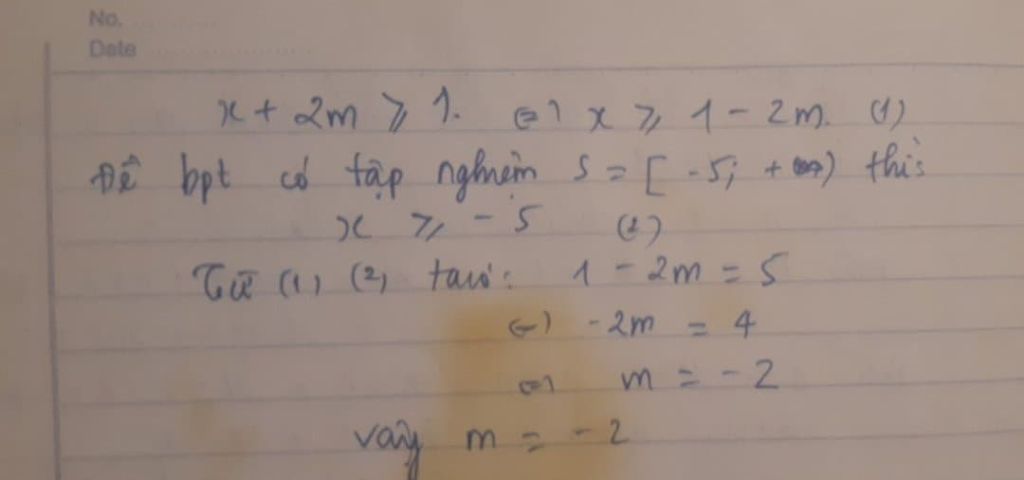 No. ..............
Date ......................
x + 2m ⩾ 1. ⇔ x ⩾ 1 - 2m. (1)
Để bpt có tập nghiệm S = [ -5; + ∞) thì
x ⩾ - 5 (2)
Từ (1) (2) ta có: 1 - 2m = 5
⇔ -2m = 4
⇔ m = - 2
vậy m = - 2